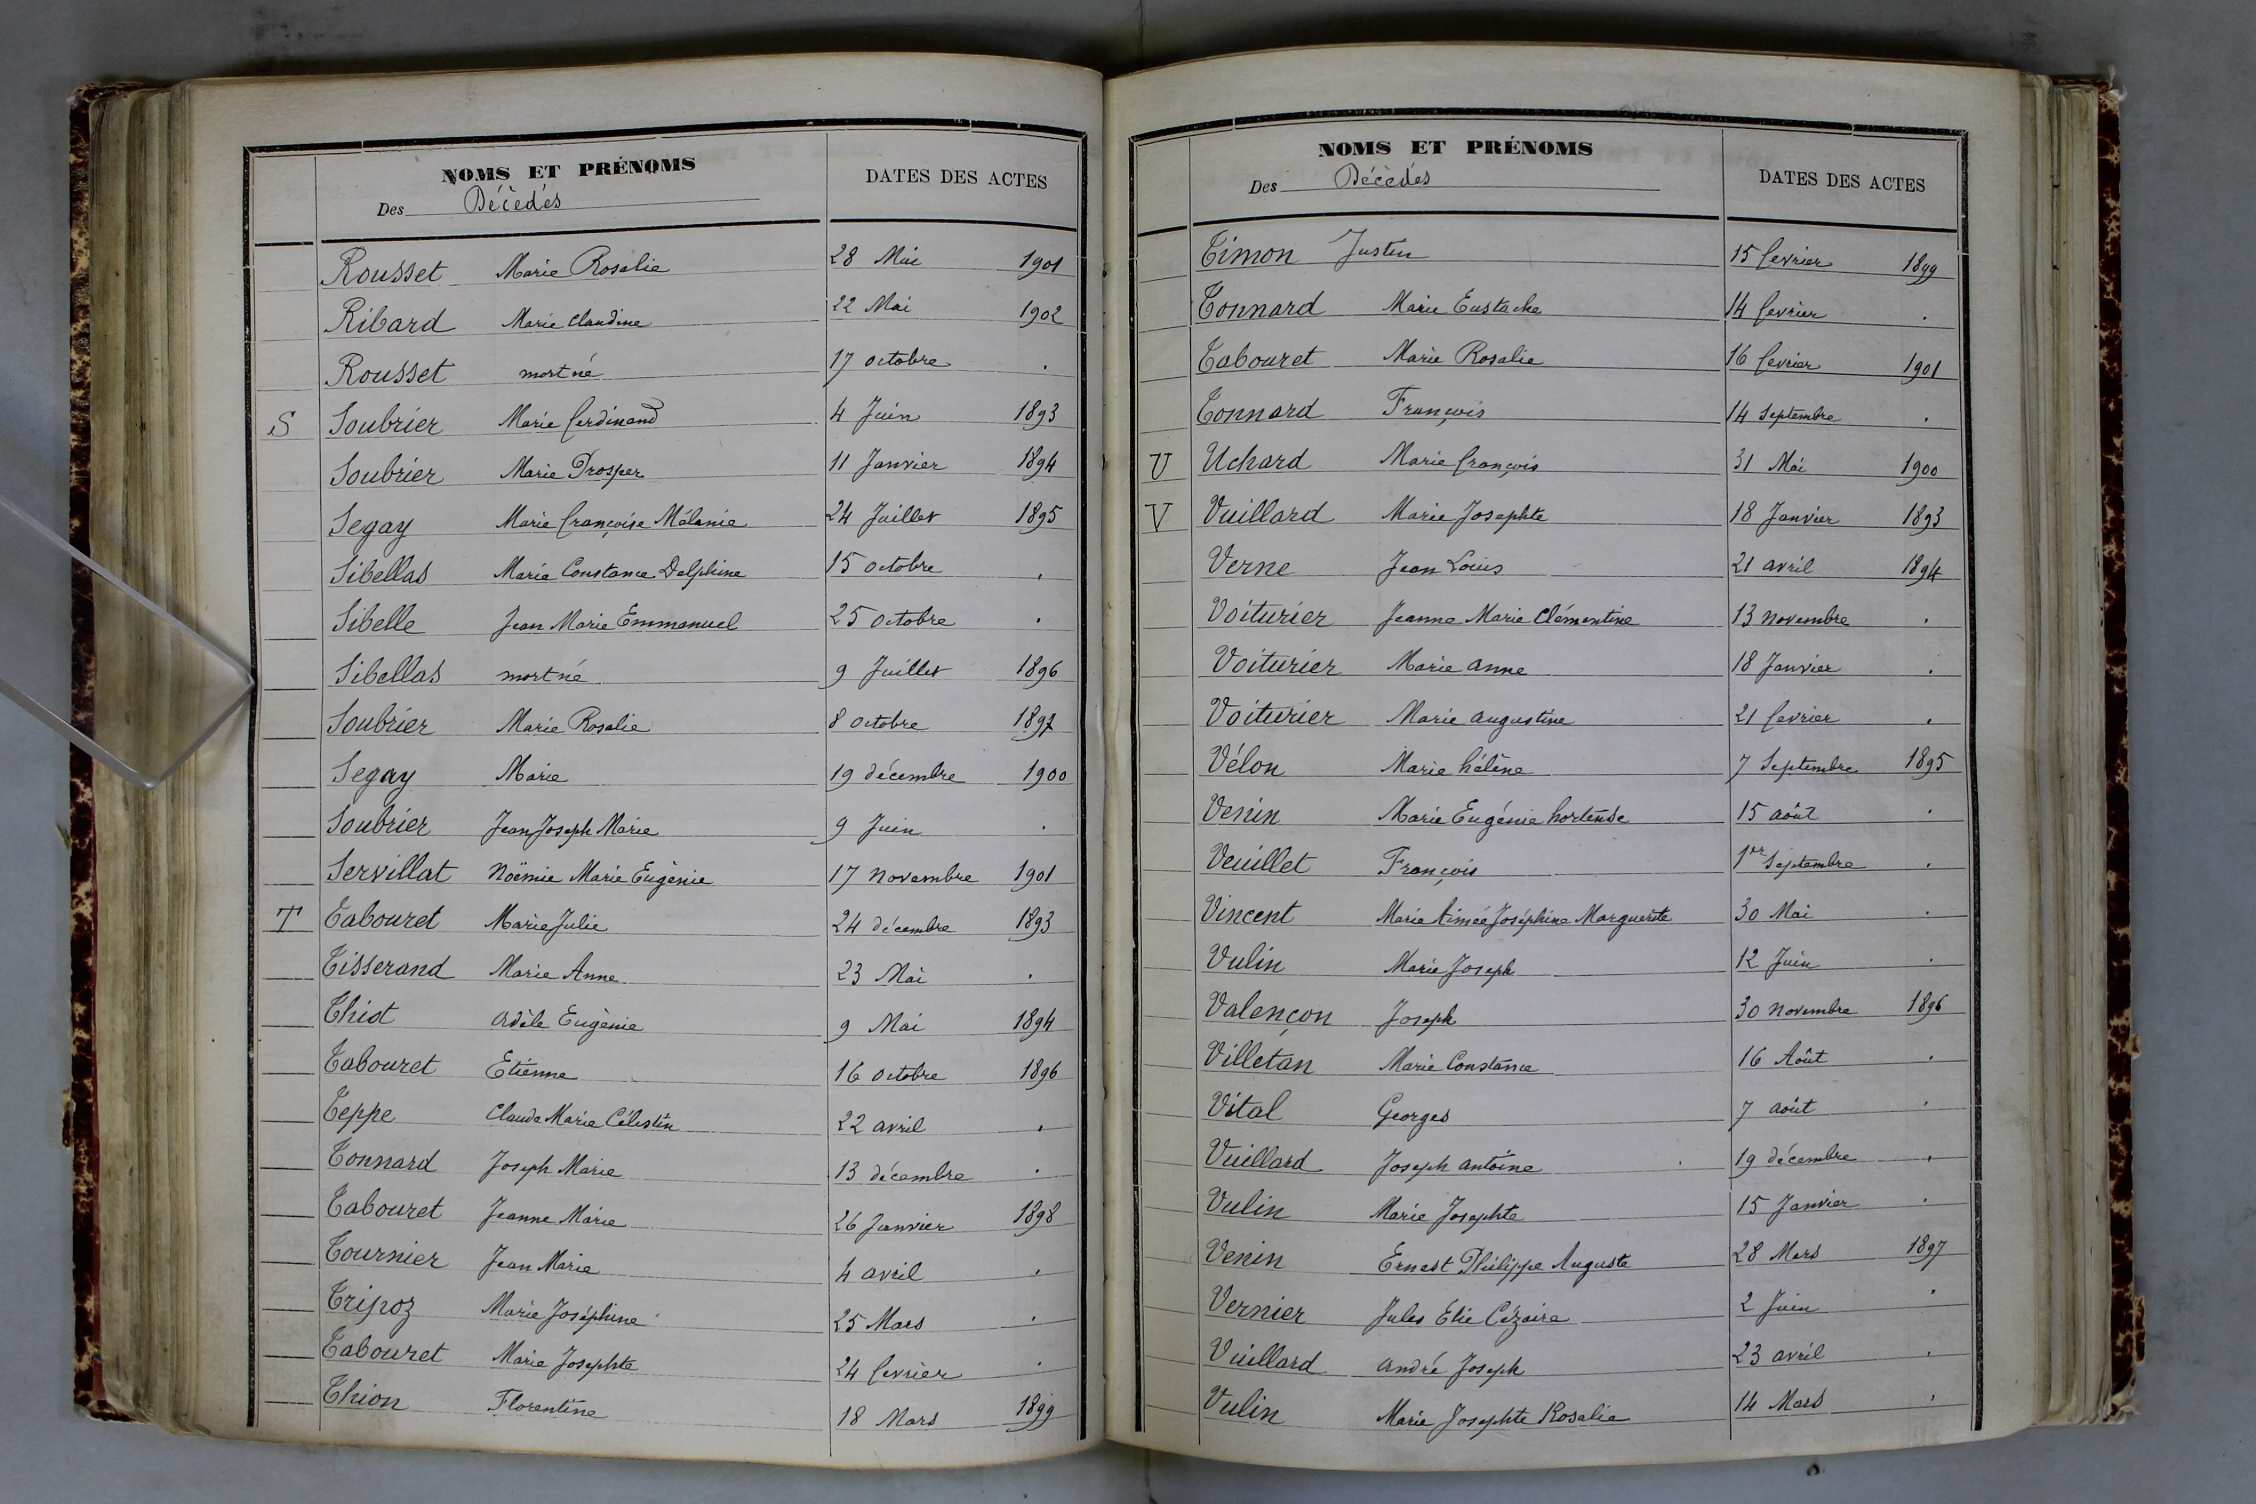 NOMS ET PRÉNOMS
Des Décèdés
DATES DES ACTES
Rousset Marie Rosalie 28 Mai 1901
Ribard Marie Claudine 22 Mai 1902
Rousset mort né 17 octobre .
S Soubrier Marie Ferdinand 4 Juin 1893
Soubrier Marie Prosper 11 Janvier 1894
Segay Marie Françoise Mélanie 24 Juillet 1895
Sibellas Marie Constance Delphine 15 octobre .
Sibelle Jean Marie Emmanuel 25 octobre .
Sibellas mort né 9 Juillet 1896
Soubrier Marie Rosalie 8 octobre 1897
Segay Marie 19 décembre 1900
Soubrier Jean Joseph Marie 9 Juin .
Servillat Noëmie Marie Eugènie 17 novembre 1901
T Tabouret Marie Julie 24 décembre 1893
Tisserand Marie Anne 23 Mai .
Thiot Adèle Eugènie 9 Mai 1894
Tabouret Etiénne 16 octobre 1896
Teppe Claude Marie Célestin 22 avril .
Tonnard Joseph Marie 13 décembre .
Tabouret Jeanne Marie 26 Janvier 1898
Tournier Jean Marie 4 avril .
Tripoz Marie Joséphine 25 Mars .
Tabouret Marie Josephte 24 fevrier .
Thion Florentine 18 Mars 1899
NOMS ET PRÉNOMS
Des Décèdés
DATES DES ACTES
Timon Justin 15 fevrier 1899
Tonnard Marie Eustache 14 fevrier .
Tabouret Marie Rosalie 16 fevrier 1901
Tonnard François 14 Septembre .
U Uchard Marie François 31 Mai 1900
V Vuillard Marie Josephte 18 Janvier 1893
Verne Jean Louis 21 avril 1894
Voiturier Jeanne Marie Clémentine 13 novembre .
Voiturier Marie Anne 18 Janvier .
Voiturier Marie augustine 21 fevrier .
Vélon Marie hélène 7 Septembre 1895
Venin Marie Eugénie hortense 15 août .
Veuillet François 1er Septembre .
Vincent Marie Aimée Joséphine Marguerite 30 Mai .
Vulin Marie Joseph 12 Juin .
Valençon Joseph 30 novembre 1896
Villetan Marie Constance 16 Août .
Vital Georges 7 août .
Vuillard Joseph antoine 19 décembre .
Vulin Marie Josephte 15 Janvier .
Venin Ernest Philippe Auguste 28 Mars 1897
Vernier Jules Elie Cézaire 2 Juin .
Vuillard andré Joseph 23 avril .
Vulin Marie Josephte Rosalie 14 Mars .